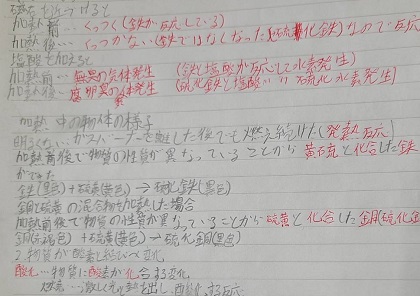 磁石を近づけると
加熱前…くっつく(鉄が反応している)
加熱後…くっつかない(鉄ではなくなった 硫化鉄)なので反
塩酸を加えると
加熱前…無臭の気体発生 (鉄と塩酸が反応して水素発生)
加熱後…腐卵臭の気体発生 (硫化鉄と塩酸 硫化水素発生)
加熱中の物体の様子
明るく ガスバーナーを離した後でも燃え続けた(発熱反応)
加熱前後で物質の性質が異なっていることから 黄 硫 と化合した鉄
ができた
鉄(黒色)+硫黄(黄色)→硫化鉄(黒色)
銅と硫黄の混合物を加熱した場合
加熱前後で物質の性質が異なっていることから硫黄と化合した銅(硫化銅
銅( 色)+硫黄(黄色)→硫化銅(黒色)
2.物質が酸素と結びつく変化
酸化…物質に酸素が化合する変化
燃焼…激しく 熱を出し、酸化する反応